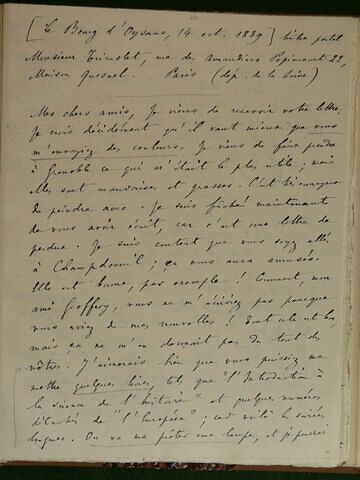 [Le Bourg d'Oysans, 14 oct. 1839] timbre postal
Monsieur Trimolet, rue des Amandiers Popincourt 22,
Maison Quesnel. Paris (dép. de la Seine)
Mes chers amis, Je viens de recevoir votre lettre.
Je crois décidément qu'il vaut mieux que vous
m'envoyiez des couleurs. Je viens de faire prendre
à Grenoble ce qui m'était le plus utile ; mais
elles sont mauvaises et grasses. C'est très ennuyeux
de peindre avec. Je suis fâché maintenant
de vous avoir écrit, car c'est une lettre de
perdue. Je suis content que vous soyez allés
à Champdoeuil ; ça vous aura amusés.
Elle est bonne, par exemple ! Comment, mon
ami Geoffroy, vous ne m'écriviez pas parce que
vous aviez de mes nouvelles ! Tout cela est bon
mais ça ne m'en donnait pas du tout des
vôtres. J'aimerais bien que vous puissiez me
mettre quelques livres, tels que "l'Introduction à
la science de l'histoire" et quelques numéros
détachés de "l'Européen" ; car voilà les soirées
longues. On va me prêter une lampe, et je pourrai